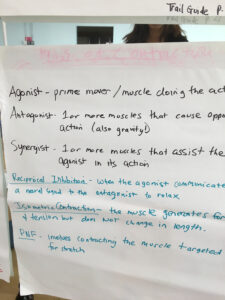 Trail Guide P.
Agonist - prime mover / muscle doing the act
Antagonist - 1 or more muscles that cause oppo
action (also gravity!)
Synergist - 1 or more muscles that assist the
agonist in its action
Reciprocal Inhibition - when the agonist communicate
a need to the antagonist to relax.
Isometric Contraction - the muscle generates for
& tension but does NOT change in length.
PNF - involves contracting the muscle targeted
for stretch